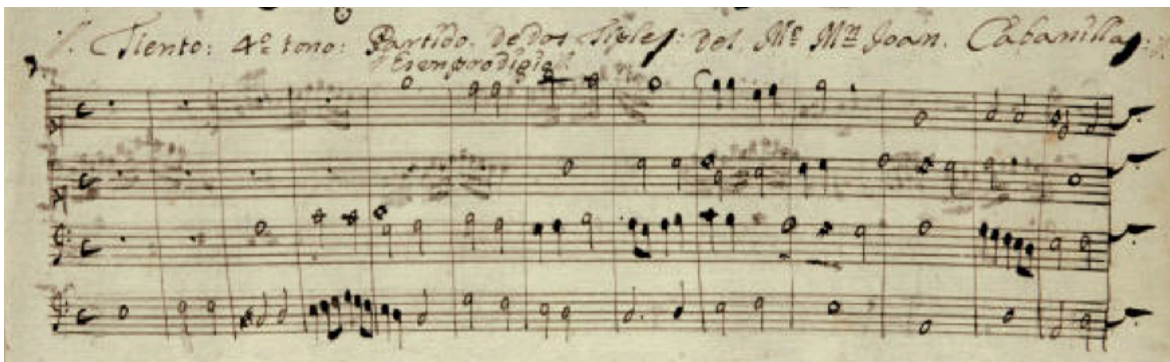 Tiento: 4º tono: Partido. de dos Tiples: del. Mº Mn Joan. Cabanillas:
Es un prodigio.